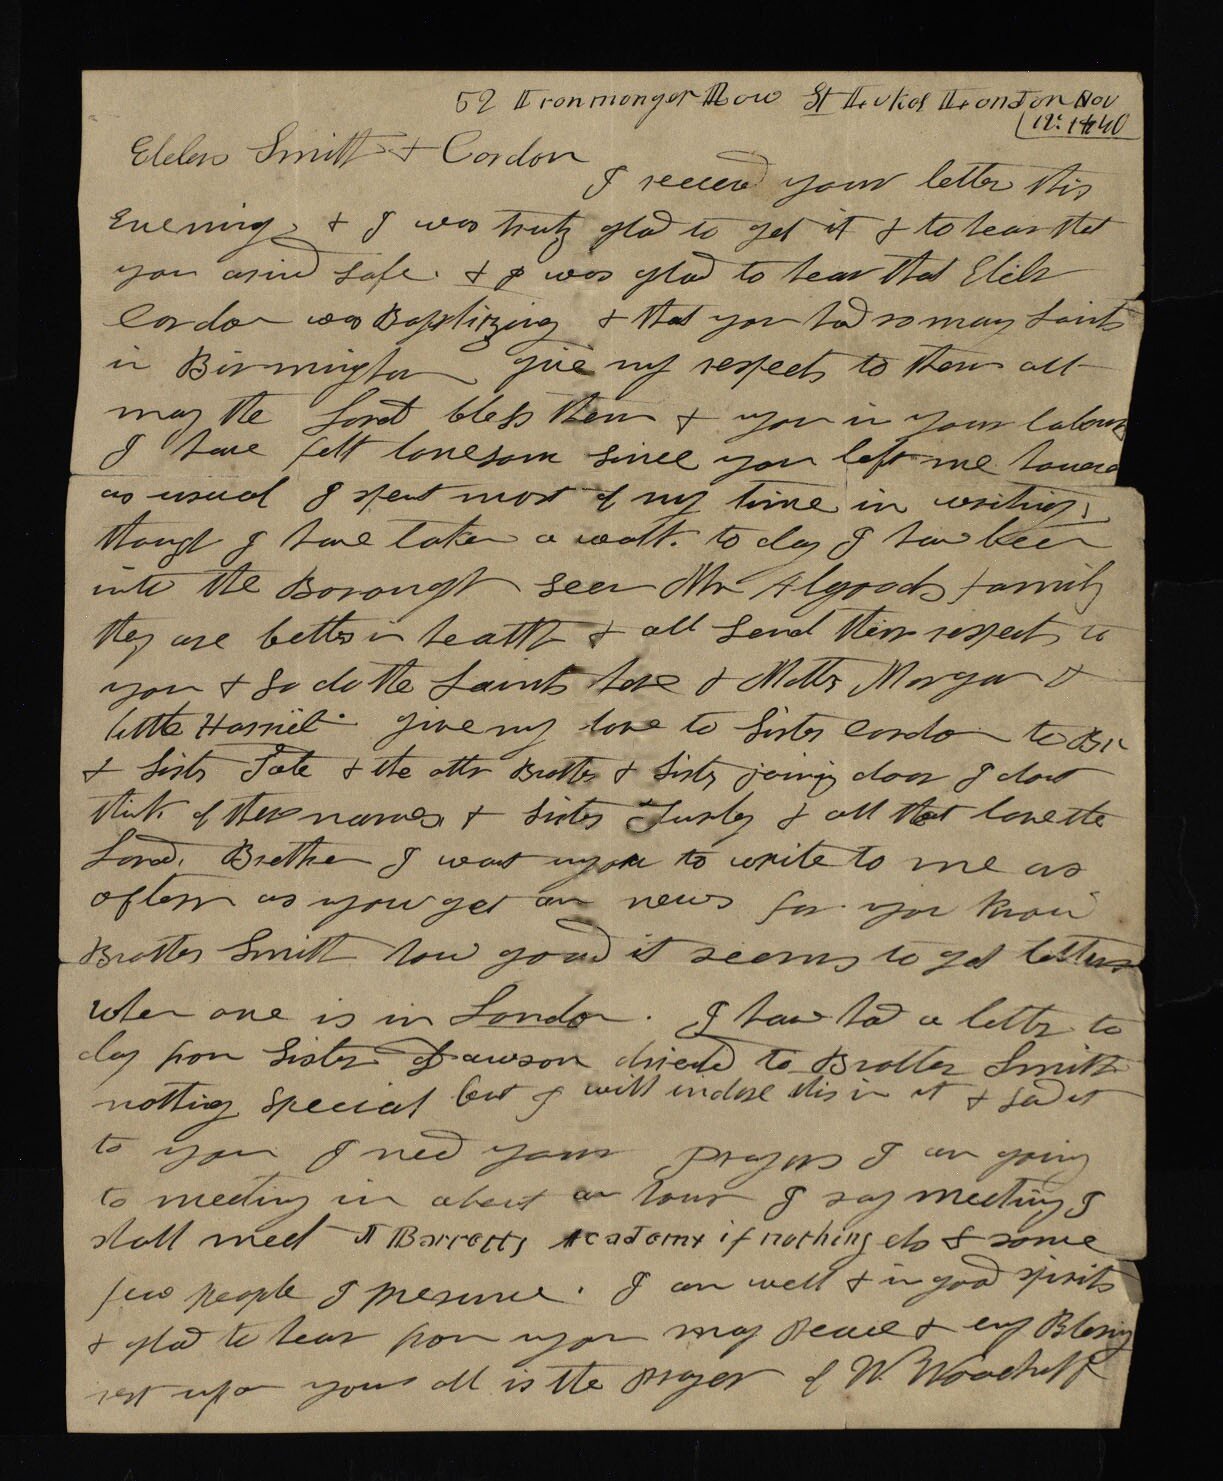 52 Ironmonger Row St Lukes London Nov
12. 1840
Elders Smith & Cordon
I received your letter this
Evening, & I was truly glad to get it & to hear that
you arived safe. & I was glad to hear that Elder
Cordon was Baptizing & that you had so many Saints
in Birmingham give my respects to them all
may the Lord bless them & you in your labours
I have felt lonesom since you left me however
as usual I spent most of my time in writing,
though I have taken a walk to day I have been
into the Borough seen Mr Algoods family
they are better in health & all send their respects to
you & so do the Saints here & Mother Morgan &
little Harriet. give my love to Sister Cordon to Br
& Sister & the other Brother & Sister joining door I dont
think of there names & Sister & all that love the
Lord. Brother I want you to write to me as
often as you get any news for you know
Brother Smith how good it seems to get letters
when one is in London. I have had a letter to
day from Sister Dawson directed to Brother Smith
nothing special but I will inclose this in it & send it
to you I need your prayers I am going
to meeting in about an hour I say meeting I
shall meet at Barretts Academy if nothing els & some
few people I presume. I am well & in good spirits
& glad to hear from you may peace & every Blessing
rest upon you all is the prayer of W. Woodruff